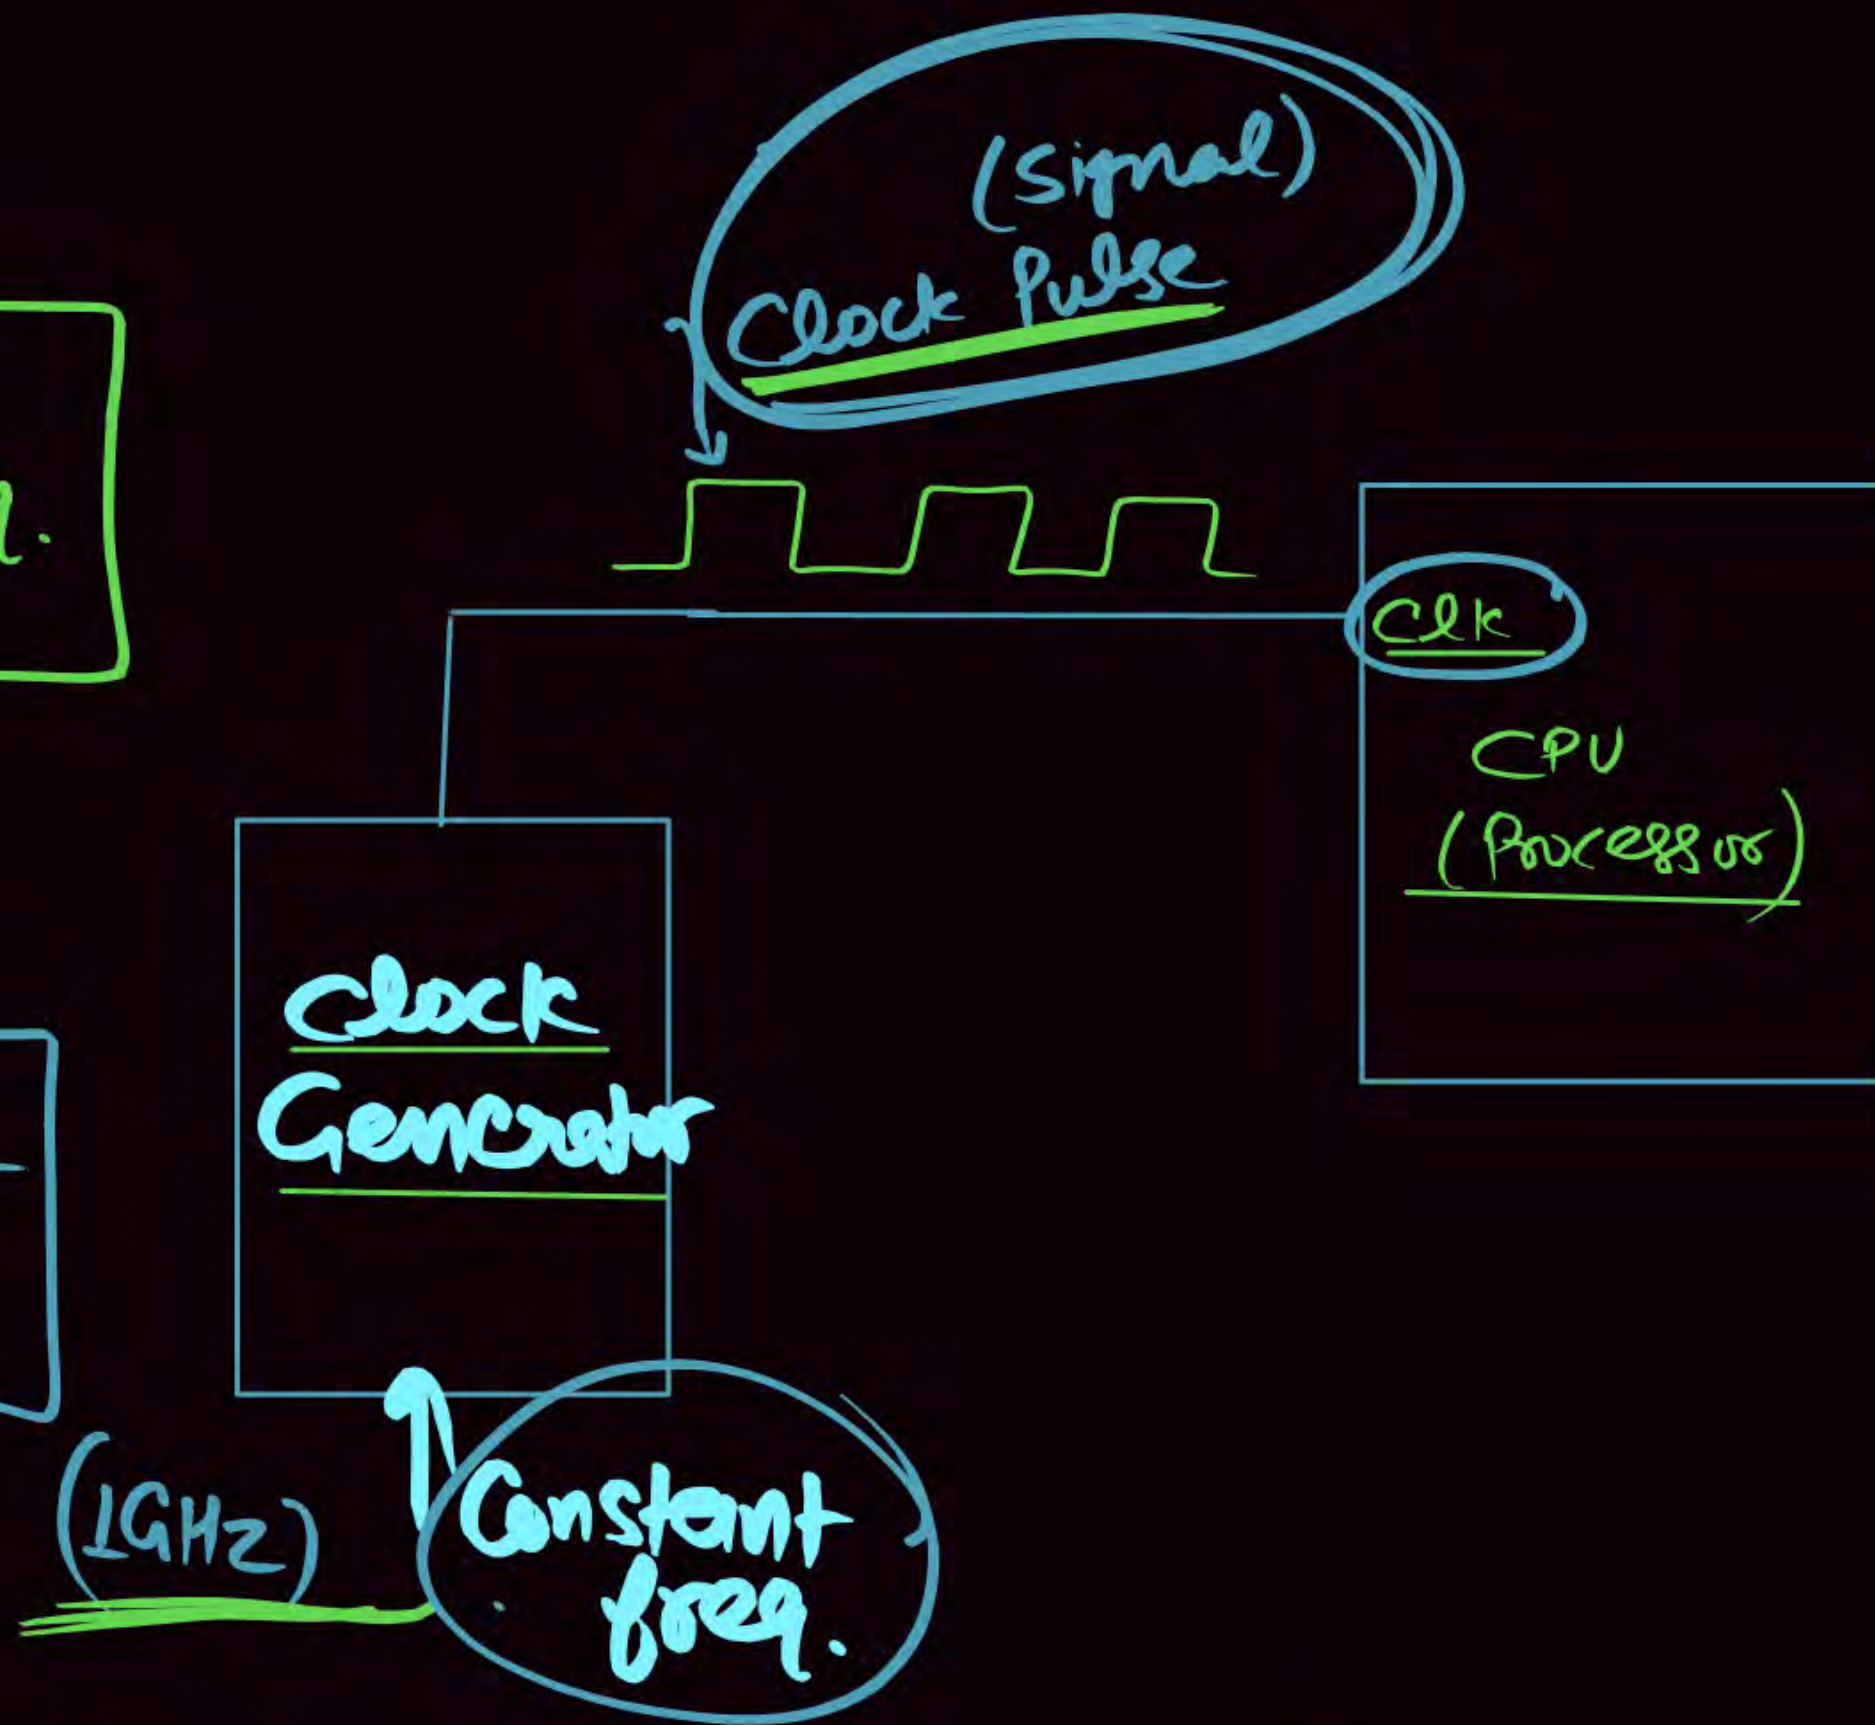 (Signal)
Clock Pulse
Clk
CPU
(Processor)
Clock
Generator
(1GHz)
Constant
freq.